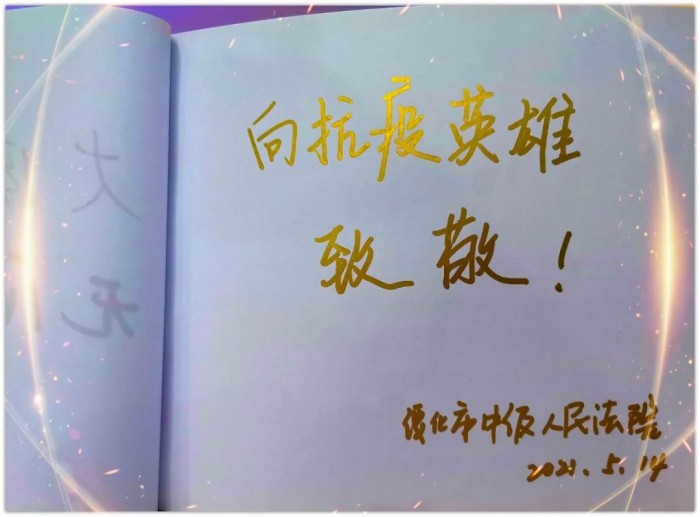 向抗疫英雄
致敬！
绥化市中级人民法院
2021.5.14